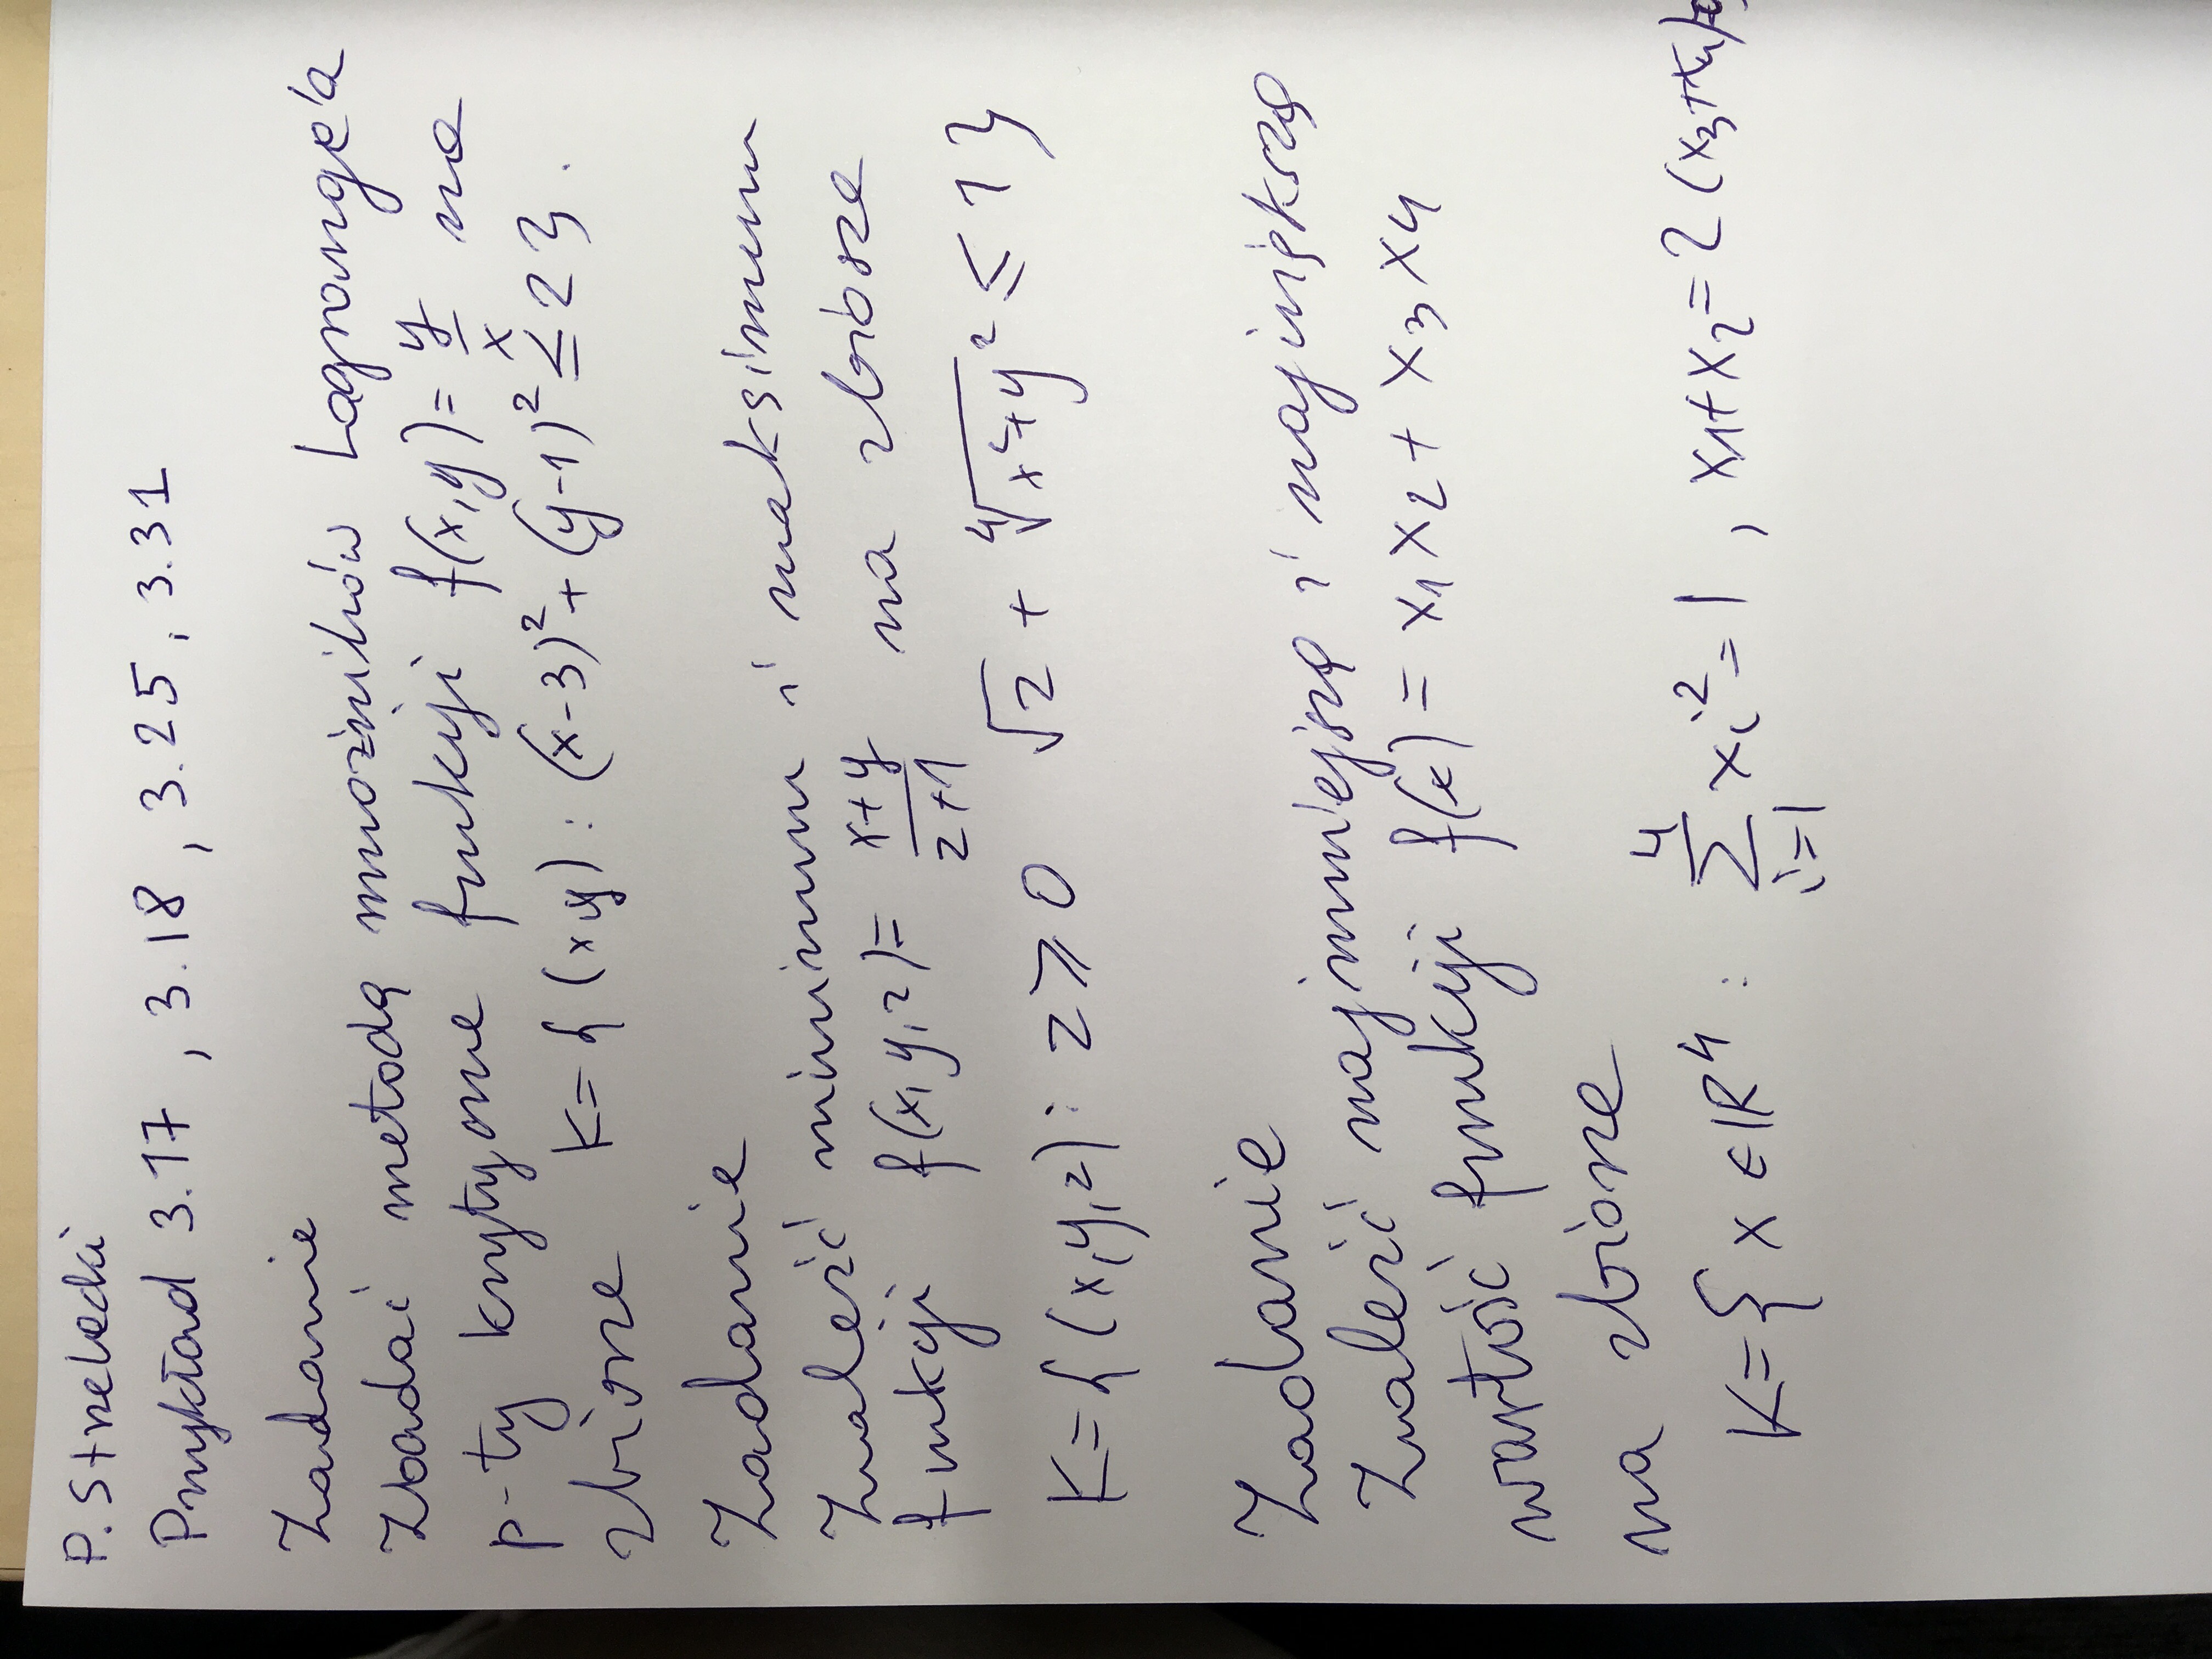 P. Strzelecki
Przykład 3.17, 3.18, 3.25, 3.31
Zadanie
Zbadać metodą mnożników Lagrange'a
p-ty krytyczne funkcji f(x,y) = y/x na
zbiorze K = { (x,y) : (x-3)² + (y-1)² ≤ 2 }.
Zadanie
Znaleźć minimum i maksimum
funkcji f(x,y,z) = x+y/z+1 na zbiorze
K = { (x,y,z) : z ≥ 0 √z + ⁴√x²+y² ≤ 1 }
Zadanie
Znaleźć najmniejszą i największą
wartość funkcji f(x) = x₁x₂ + x₃x₄
na zbiorze
K = { x ∈ ℝ⁴ : ∑ᵢ₌₁⁴ xᵢ² = 1 , x₁+x₂ = 2(x₃+x₄)